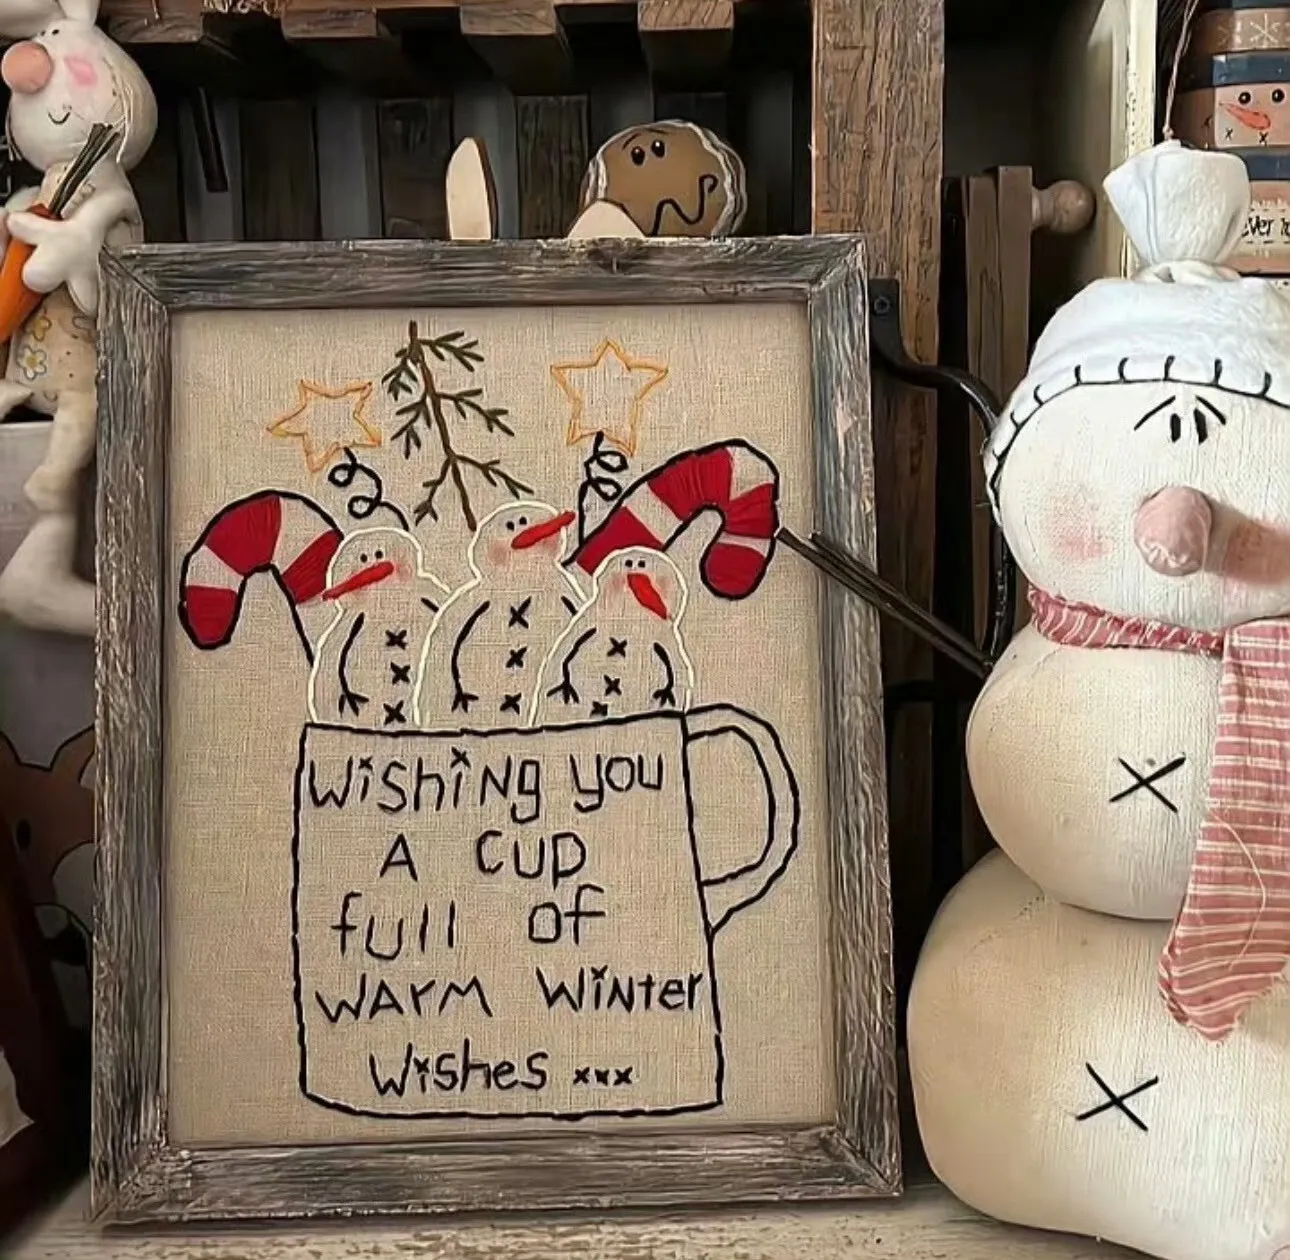 Wishing you
A cup
full of
WArM Winter
Wishes xxx